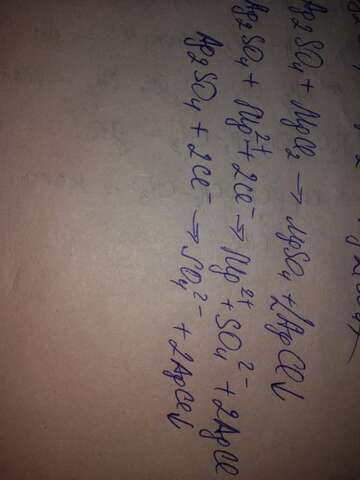 Ag₂SO₄ + MgCl₂ → MgSO₄ + 2AgCl↓
Ag₂SO₄ + Mg²⁺ + 2Cl⁻ → Mg²⁺ + SO₄²⁻ + 2AgCl
Ag₂SO₄ + 2Cl⁻ → SO₄²⁻ + 2AgCl↓